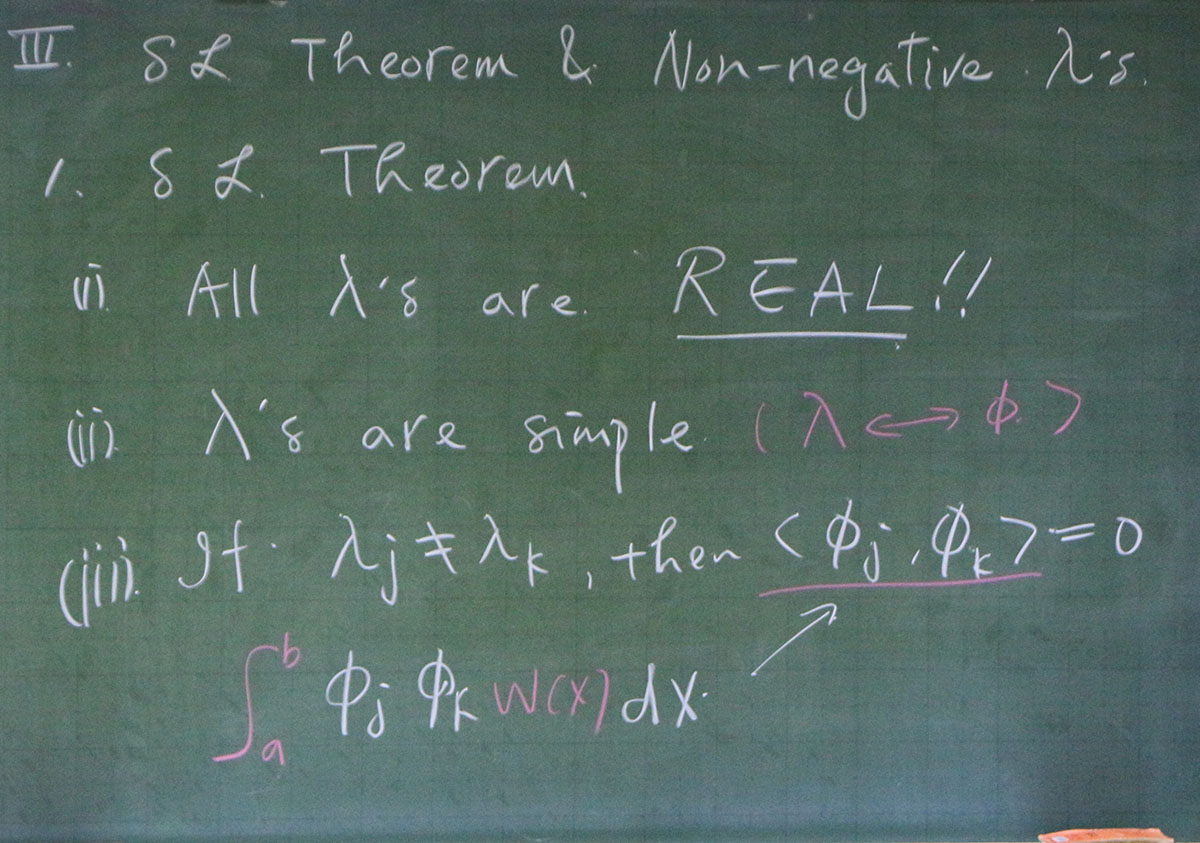 III. SL Theorem & Non-negative λ's.
1. SL. Theorem.
(i) All λ's are. REAL!!
(ii). λ's are simple. (λ ↔ ϕ.)
(iii). If. λj ≠ λk, then <ϕj, ϕk> = 0
∫_a^b ϕj ϕk W(x) dx.